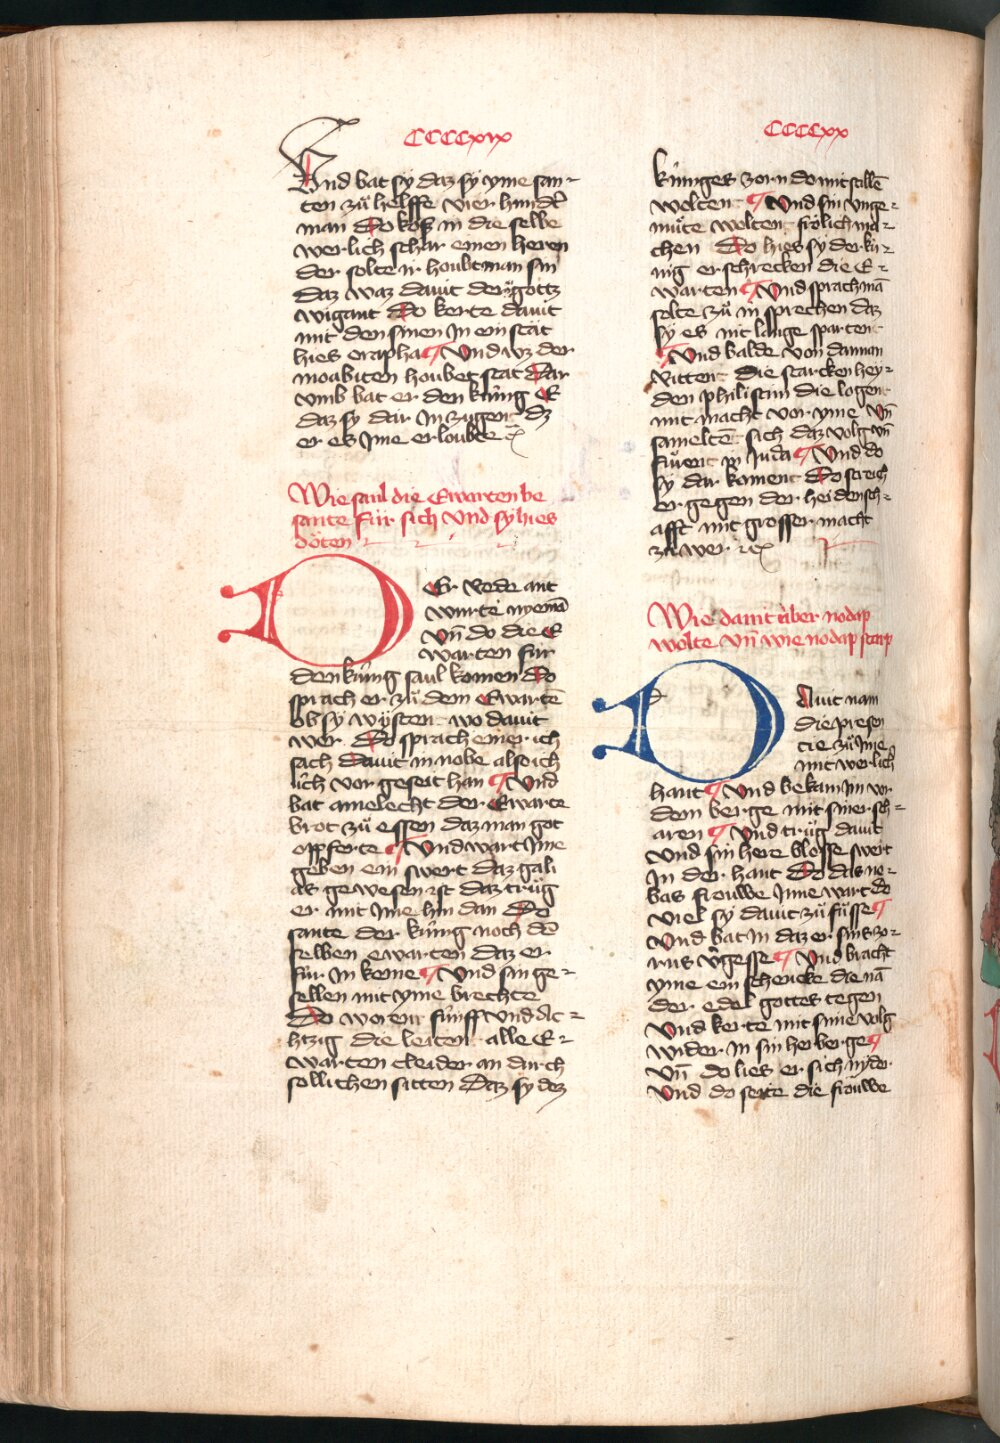 CCCCxix
Und bat sy daz sy yme san-
ten zü helffe vier hundt̄
man Do kos in die selbe
werlich schar einen heren
der solte ir houbtman sin
daz waz dauit der gottz
wigant Do kerte dauit
mit den sinen In ein stat
hies erapha ¶ Vnd wz der
moabiten houbet stat Dar
vmb bat er den küng E
daz sy dar In zugent dz
er es Ime erloubte
Wie saul die Ewarten be
sante für sich Vnd sy hies
döten
DEr rede ant
wurte nyemā
Vn̄ do die E
warten für
den küng saul komen Do
sprach er zü dem Ewartē
ob sy wysten wo dauit
wer Do sprach einer ich
sach dauit in nobe also ich
üch vor geseit han ¶ Vnd
bat amelecht der Ewarte
brot zü essen daz man got
opferte ¶ Vnd wart Ime
geben ein swert daz goli
as gewesen ist daz trüg
er mit Ime hin dan Do
sante der küng noch dē
selben ewarten daz er
für In keme ¶ Vnd sin ge-
sellen mit yme brechte
Do worent fünff vnd ac-
htzig die leiten alle E-
warten cleider an durch
sollichen sitten Daz sy dez
CCCCxx
künges zorn do mit stillē
wolten ¶ Vnd sin vnge-
müte wolten frölich ma-
chen Do hies sy der kü-
nig erschrecken die E-
warten ¶ Vnd sprach mā
solte zü in sprechen daz
sy es nit lange spartent
¶ Vnd balde von dannan
rittent die starcken hey-
den philistin die logent
mit macht vor yme Vn̄
sameltē sich daz volg vn̄
fürent in Juda ¶ Vnd do
sy dar koment Do streich
er gegen der heidensch-
afft mit grosser macht
zü wer
Wie dauit über nodap
wolte Vn̄ wie nodap starp
DAuit nam
die presen
cie zü Ime
mit werlich
hant ¶ Vnd bekam Im vor
dem berge mit siner sch-
aren ¶ Vnd trüg dauit
Vnd sin here blosse swert
In der hant Do das na-
bas frouwe Inne wart do
viel sy dauit zü füsse ¶
Vnd bat In daz er sins zo-
rns v̄gesse ¶ Vnd bracht
yme ein schencke die nā
der edel gottes tegen
Vnd kerte mit sime volg
wider In sin herberge ¶
Vn̄ do lies er sich nyder
Vnd do seite die frouwe